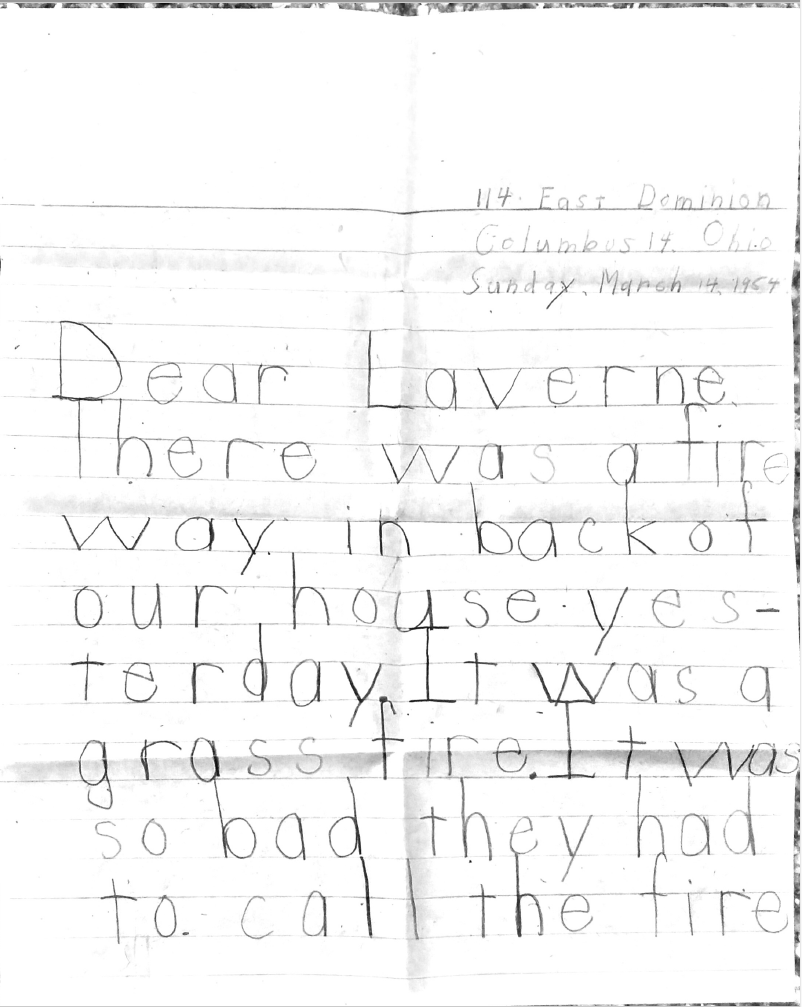 114. East Dominion
Columbus 14. Ohio
Sunday, March 14, 1954
Dear Laverne.
There was a fire
way in back of
our house yes-
terday. It was a
grass fire. It was
so bad they had
to call the fire